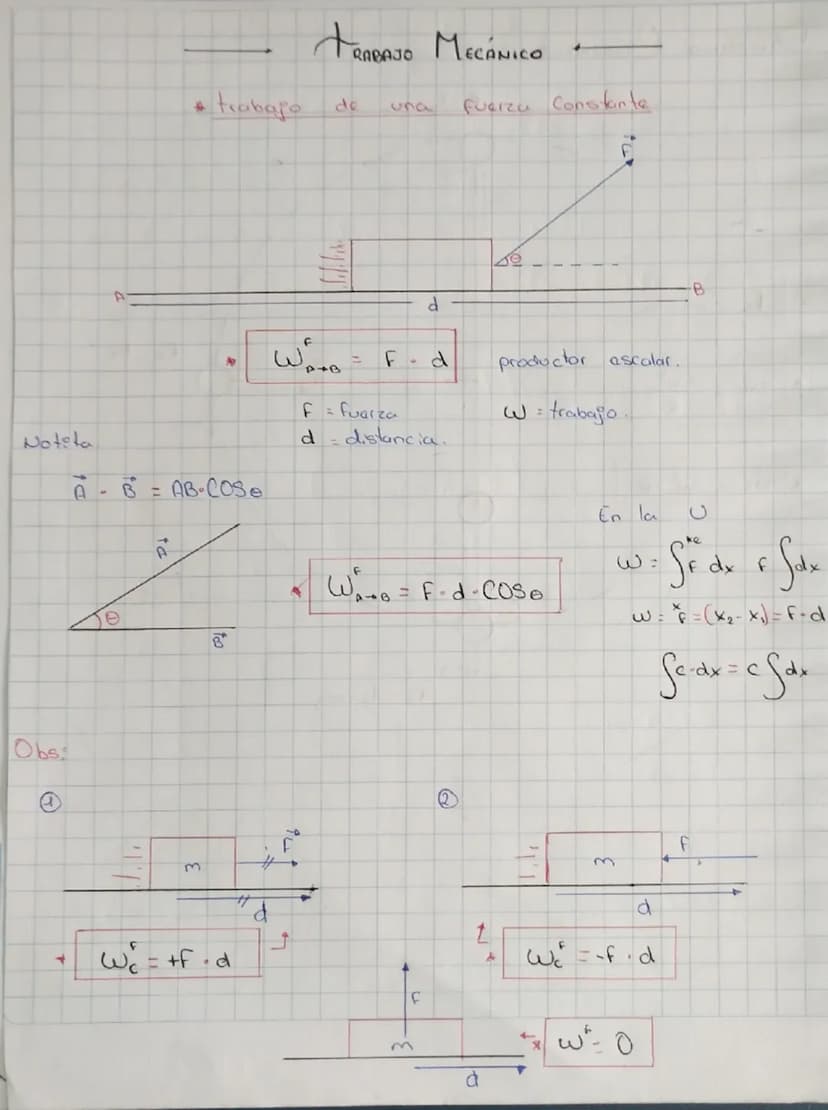 TRABAJO MECÁNICO
* trabajo de una fuerza constante
F⃗
θ
A B
d
* W^F_{A→B} = F · d productor escalar.
F = fuerza W = trabajo.
d = distancia.
Notita
A⃗ · B⃗ = AB·COSθ
A⃗
θ
B⃗
* W^F_{A→B} = F·d·COSθ
En la U
W = ∫^{x2} F dx F ∫dx
x
W = F = (x₂ - x₁) = F·d
∫c·dx = c ∫dx
Obs:
① ②
m F⃗
d
m F
d
* W^F_C = +F · d
* W^F_C = -F · d
F
m
d
* W^F = 0